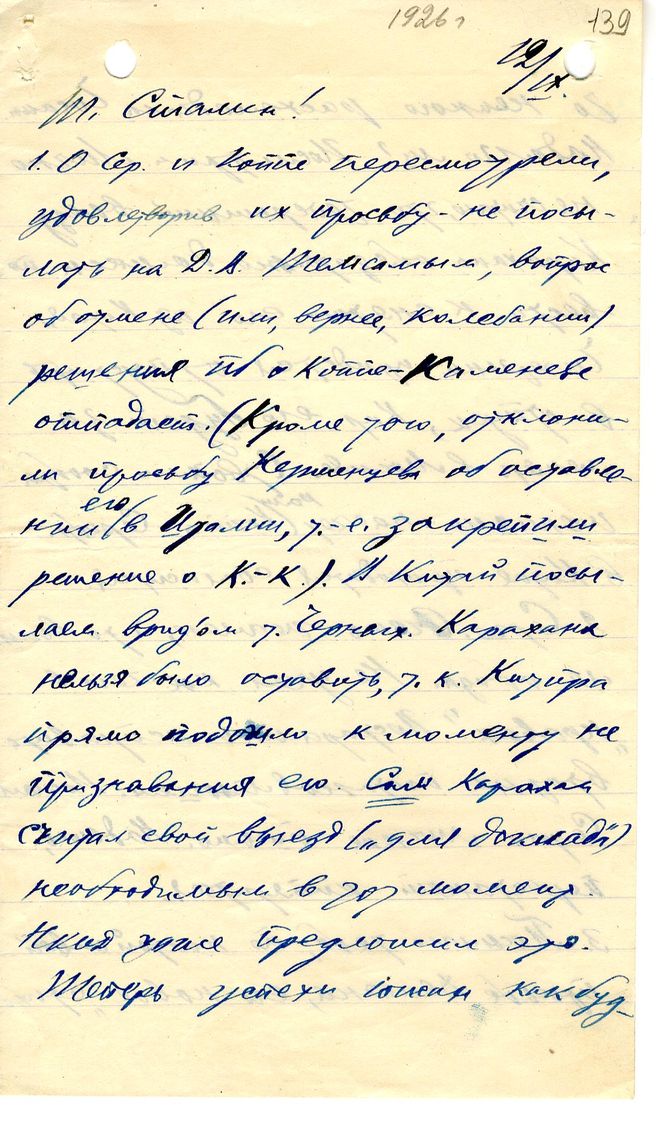 1926 г
139
12/IX.
Т. Сталин!
1. О Сер. и Коппе пересмотрели,
удовлетворив их просьбу - не посы-
лать на Д. В. Тем самым, вопрос
об отмене (или, вернее, колебании)
решения ПБ о Коппе-Каменеве
отпадает. (Кроме того, отклони-
ли просьбу Керженцева об оставле-
нии его (в Италии, т.-е. закрепили
решение о К.-К.). В Китай посы-
лаем врид'ом т. Черных. Карахана
нельзя было оставить, т. к. Китпра
прямо подошло к моменту не
признавания его. Сам Карахан
считал свой выезд („для доклада“)
необходимым в этот момент.
Нкид даже предложил это.
Теперь успехи южан как буд-